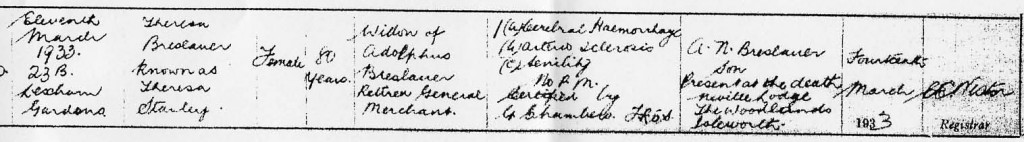 Eleventh
March
1933.
23B.
Lexham
Gardens
Theresa
Breslauer
known as
Theresa
Stanley
Female
80
Years.
Widow of
Adolphus
Breslauer
Retired General
Merchant.
1(a) Cerebral Haemorrhage
(b) arterio sclerosis
(c) Senility
No P.M.
Certified by
G Chambers
A. N. Breslauer
Son
Present at the death
Neville Lodge
The Woodlands
Isleworth.
Fourteenth
March
1933
Registrar